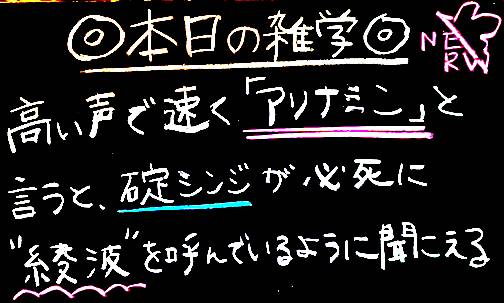 ◎本日の雑学◎
NERV
高い声で速く「アリナミン」と
言うと、碇シンジが必死に
"綾波"を呼んでいるように聞こえる